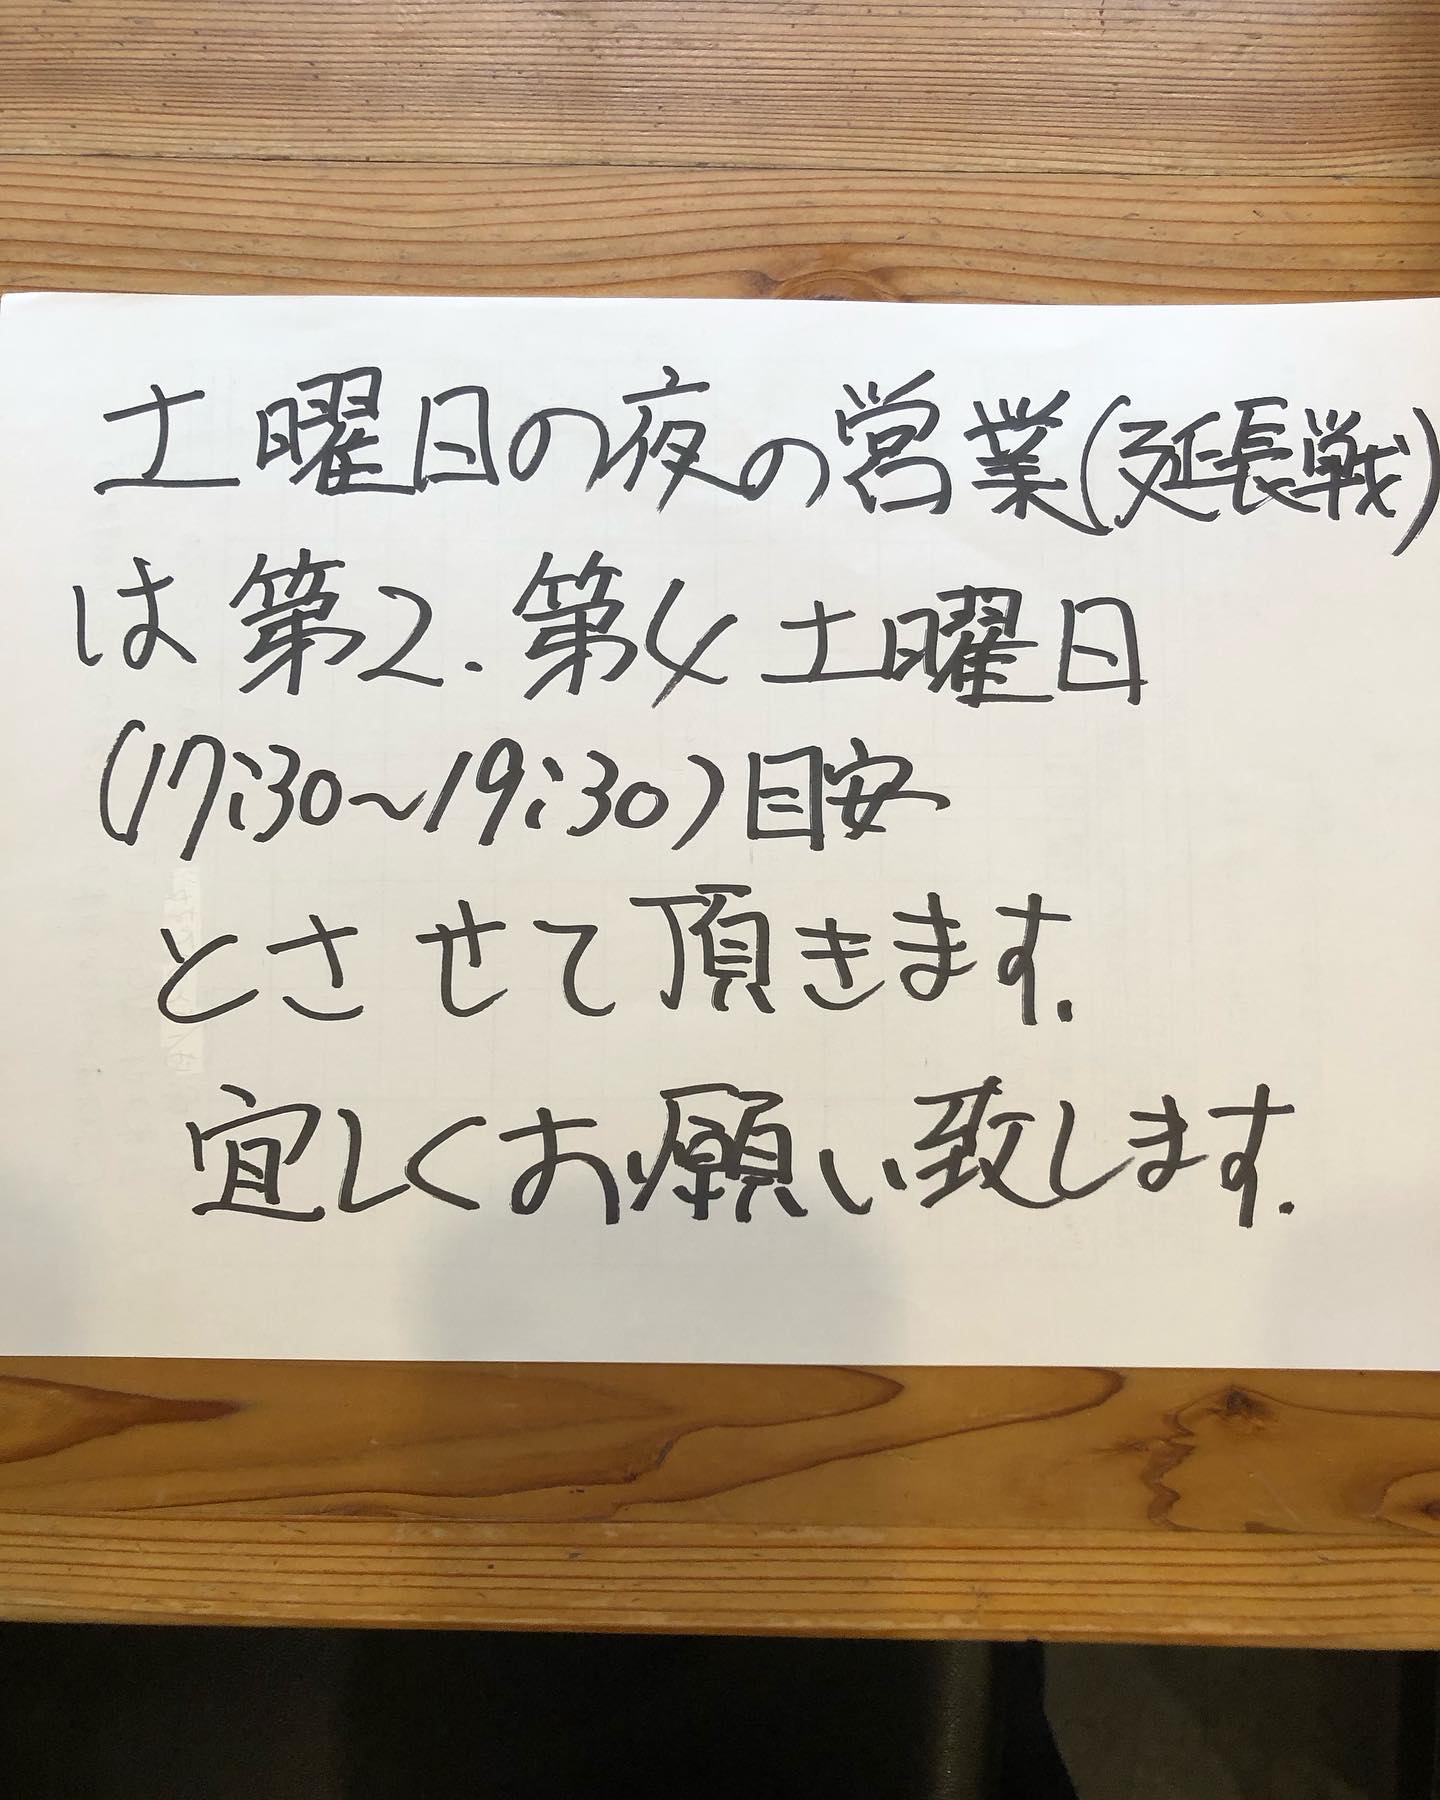 土曜日の夜の営業(延長戦)
は第2.第4土曜日
(17:30〜19:30)目安
とさせて頂きます.
宜しくお願い致します.